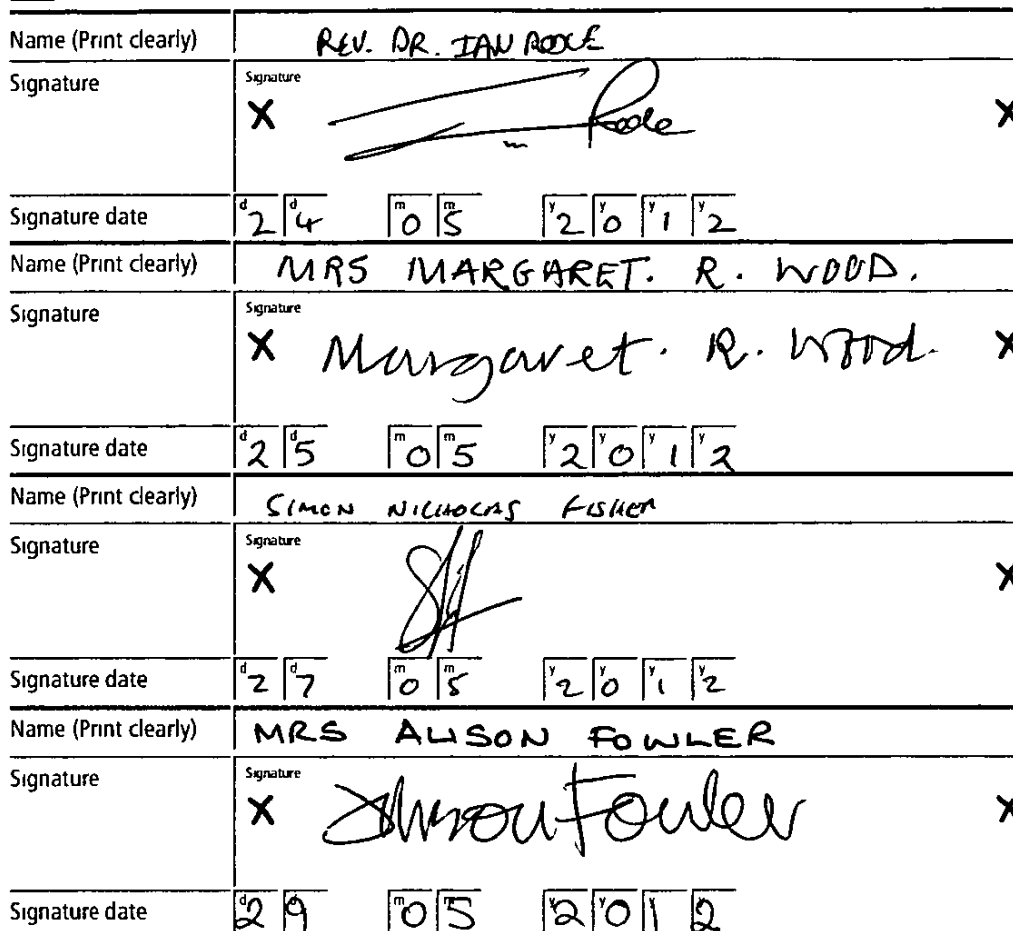 Name (Print clearly) REV. DR. IAN
Signature Signature
X X
Signature date d2 d4 m0 m5 y2 y0 y1 y2
Name (Print clearly) MRS MARGARET. R. WOOD.
Signature Signature
X Margaret. R. Wood. X
Signature date d2 d5 m0 m5 y2 y0 y1 y2
Name (Print clearly) SIMON NICHOLAS FISHER
Signature Signature
X X
Signature date d2 d7 m0 m5 y2 y0 y1 y2
Name (Print clearly) MRS ALISON FOWLER
Signature Signature
X Alison Fowler X
Signature date d2 d9 m0 m5 y2 y0 y1 y2